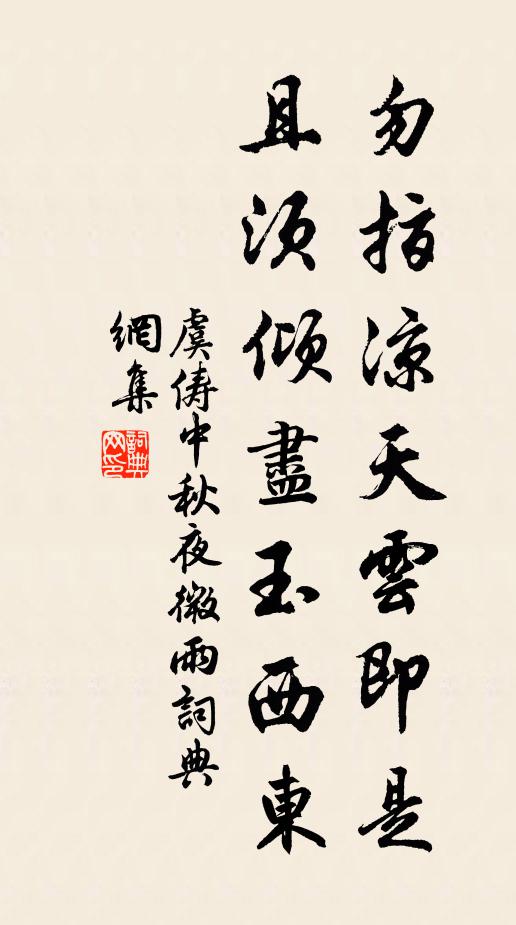 勿指涼天雲即是
且須傾盡玉西東
虞儔中秋夜微雨詞典
網集
詞典網印